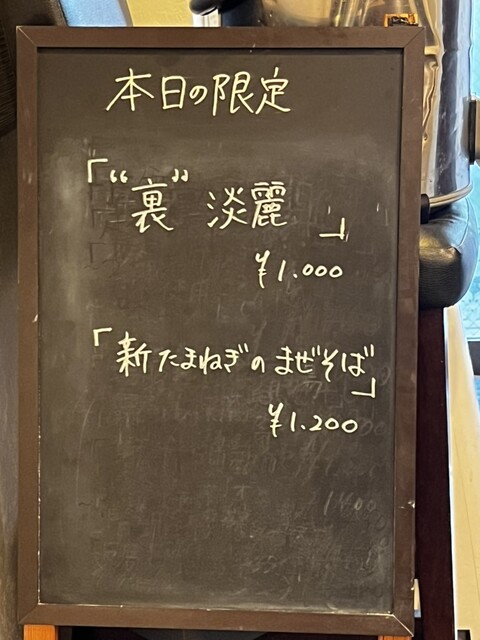 本日の限定
「“裏” 淡麗 」
¥1.000
「新たまねぎのまぜそば」
¥1.200